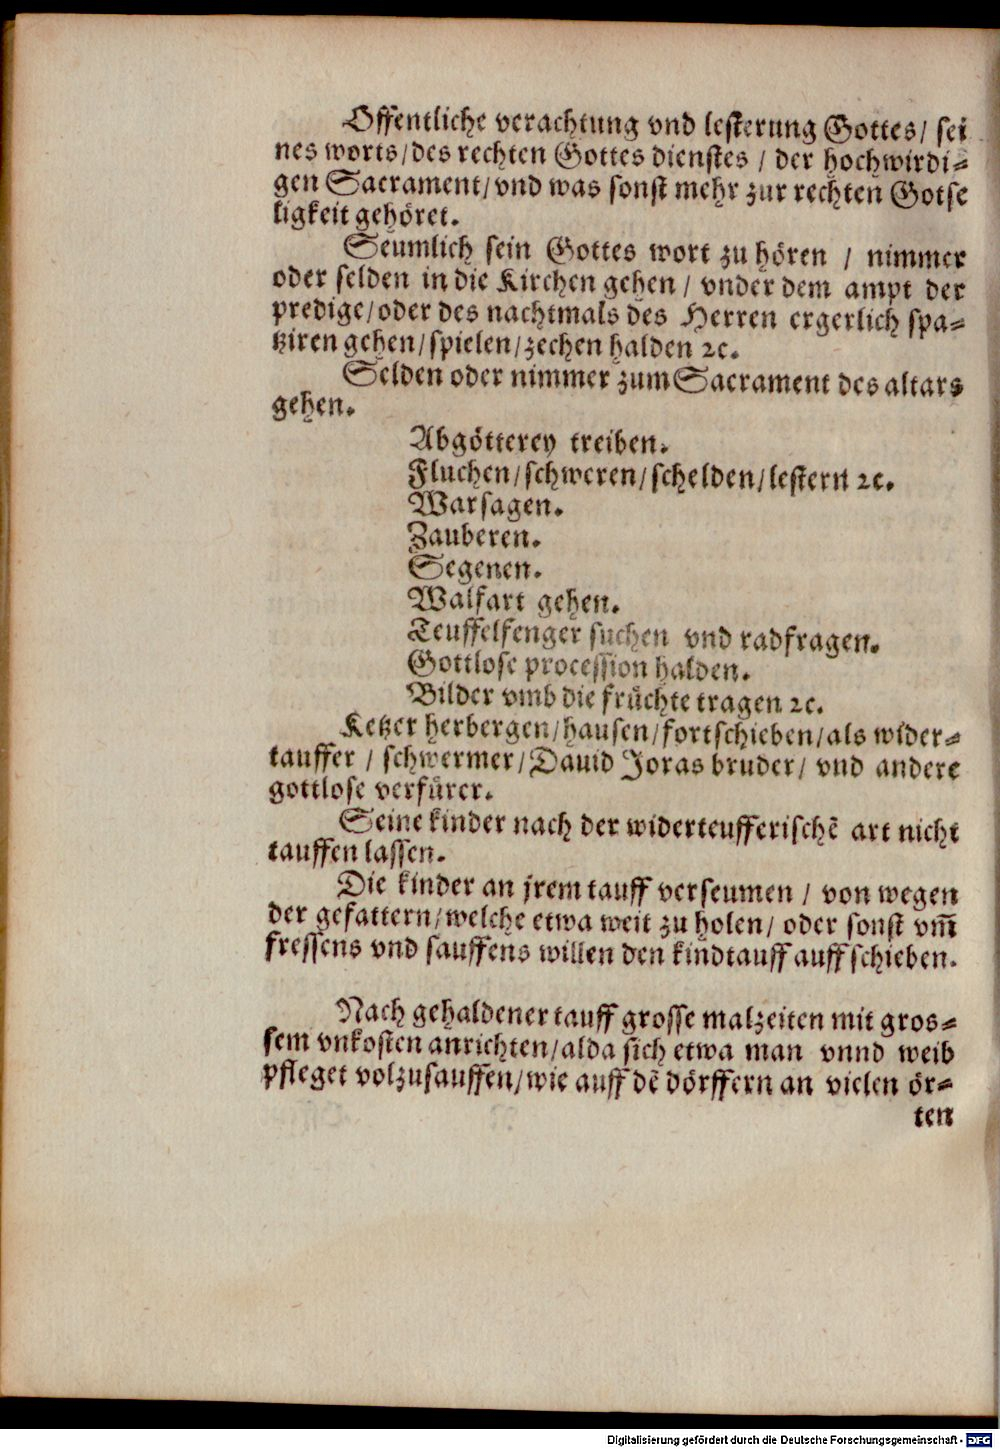 Offentliche verachtung vnd lesterung Gottes/ sei
nes worts/des rechten Gottes dienstes / der hochwirdi-
gen Sacrament/vnd was sonst mehr zur rechten Gotse
ligkeit gehöret.
Seumlich sein Gottes wort zu hören / nimmer
oder selden in die Kirchen gehen/ vnder dem ampt der
predige/oder des nachtmals des Herren ergerlich spa-
tziren gehen/spielen/zechen halden ꝛc.
Selden oder nimmer zum Sacrament des altars
gehen.
Abgötterey treiben.
Fluchen/schweren/schelden/lestern ꝛc.
Warsagen.
Zauberen.
Segenen.
Walfart gehen.
Teuffelfenger suchen vnd radfragen.
Gottlose procession halden.
Bilder vmb die früchte tragen ꝛc.
Ketzer herbergen/hausen/fortschieben/als wider-
tauffer / schwermer/Dauid Joras bruder/ vnd andere
gottlose verfürer.
Seine kinder nach der widerteufferischẽ art nicht
tauffen lassen.
Die kinder an jrem tauff verseumen / von wegen
der gefattern/welche etwa weit zu holen/ oder sonst vm̃
fressens vnd sauffens willen den kindtauff auffschieben.
Nach gehaldener tauff grosse malzeiten mit gros-
sem vnkosten anrichten/alda sich etwa man vnnd weib
pfleget volzusauffen/wie auff dẽ dörffern an vielen ör-
ten
Digitalisierung gefördert durch die Deutsche Forschungsgemeinschaft - DFG